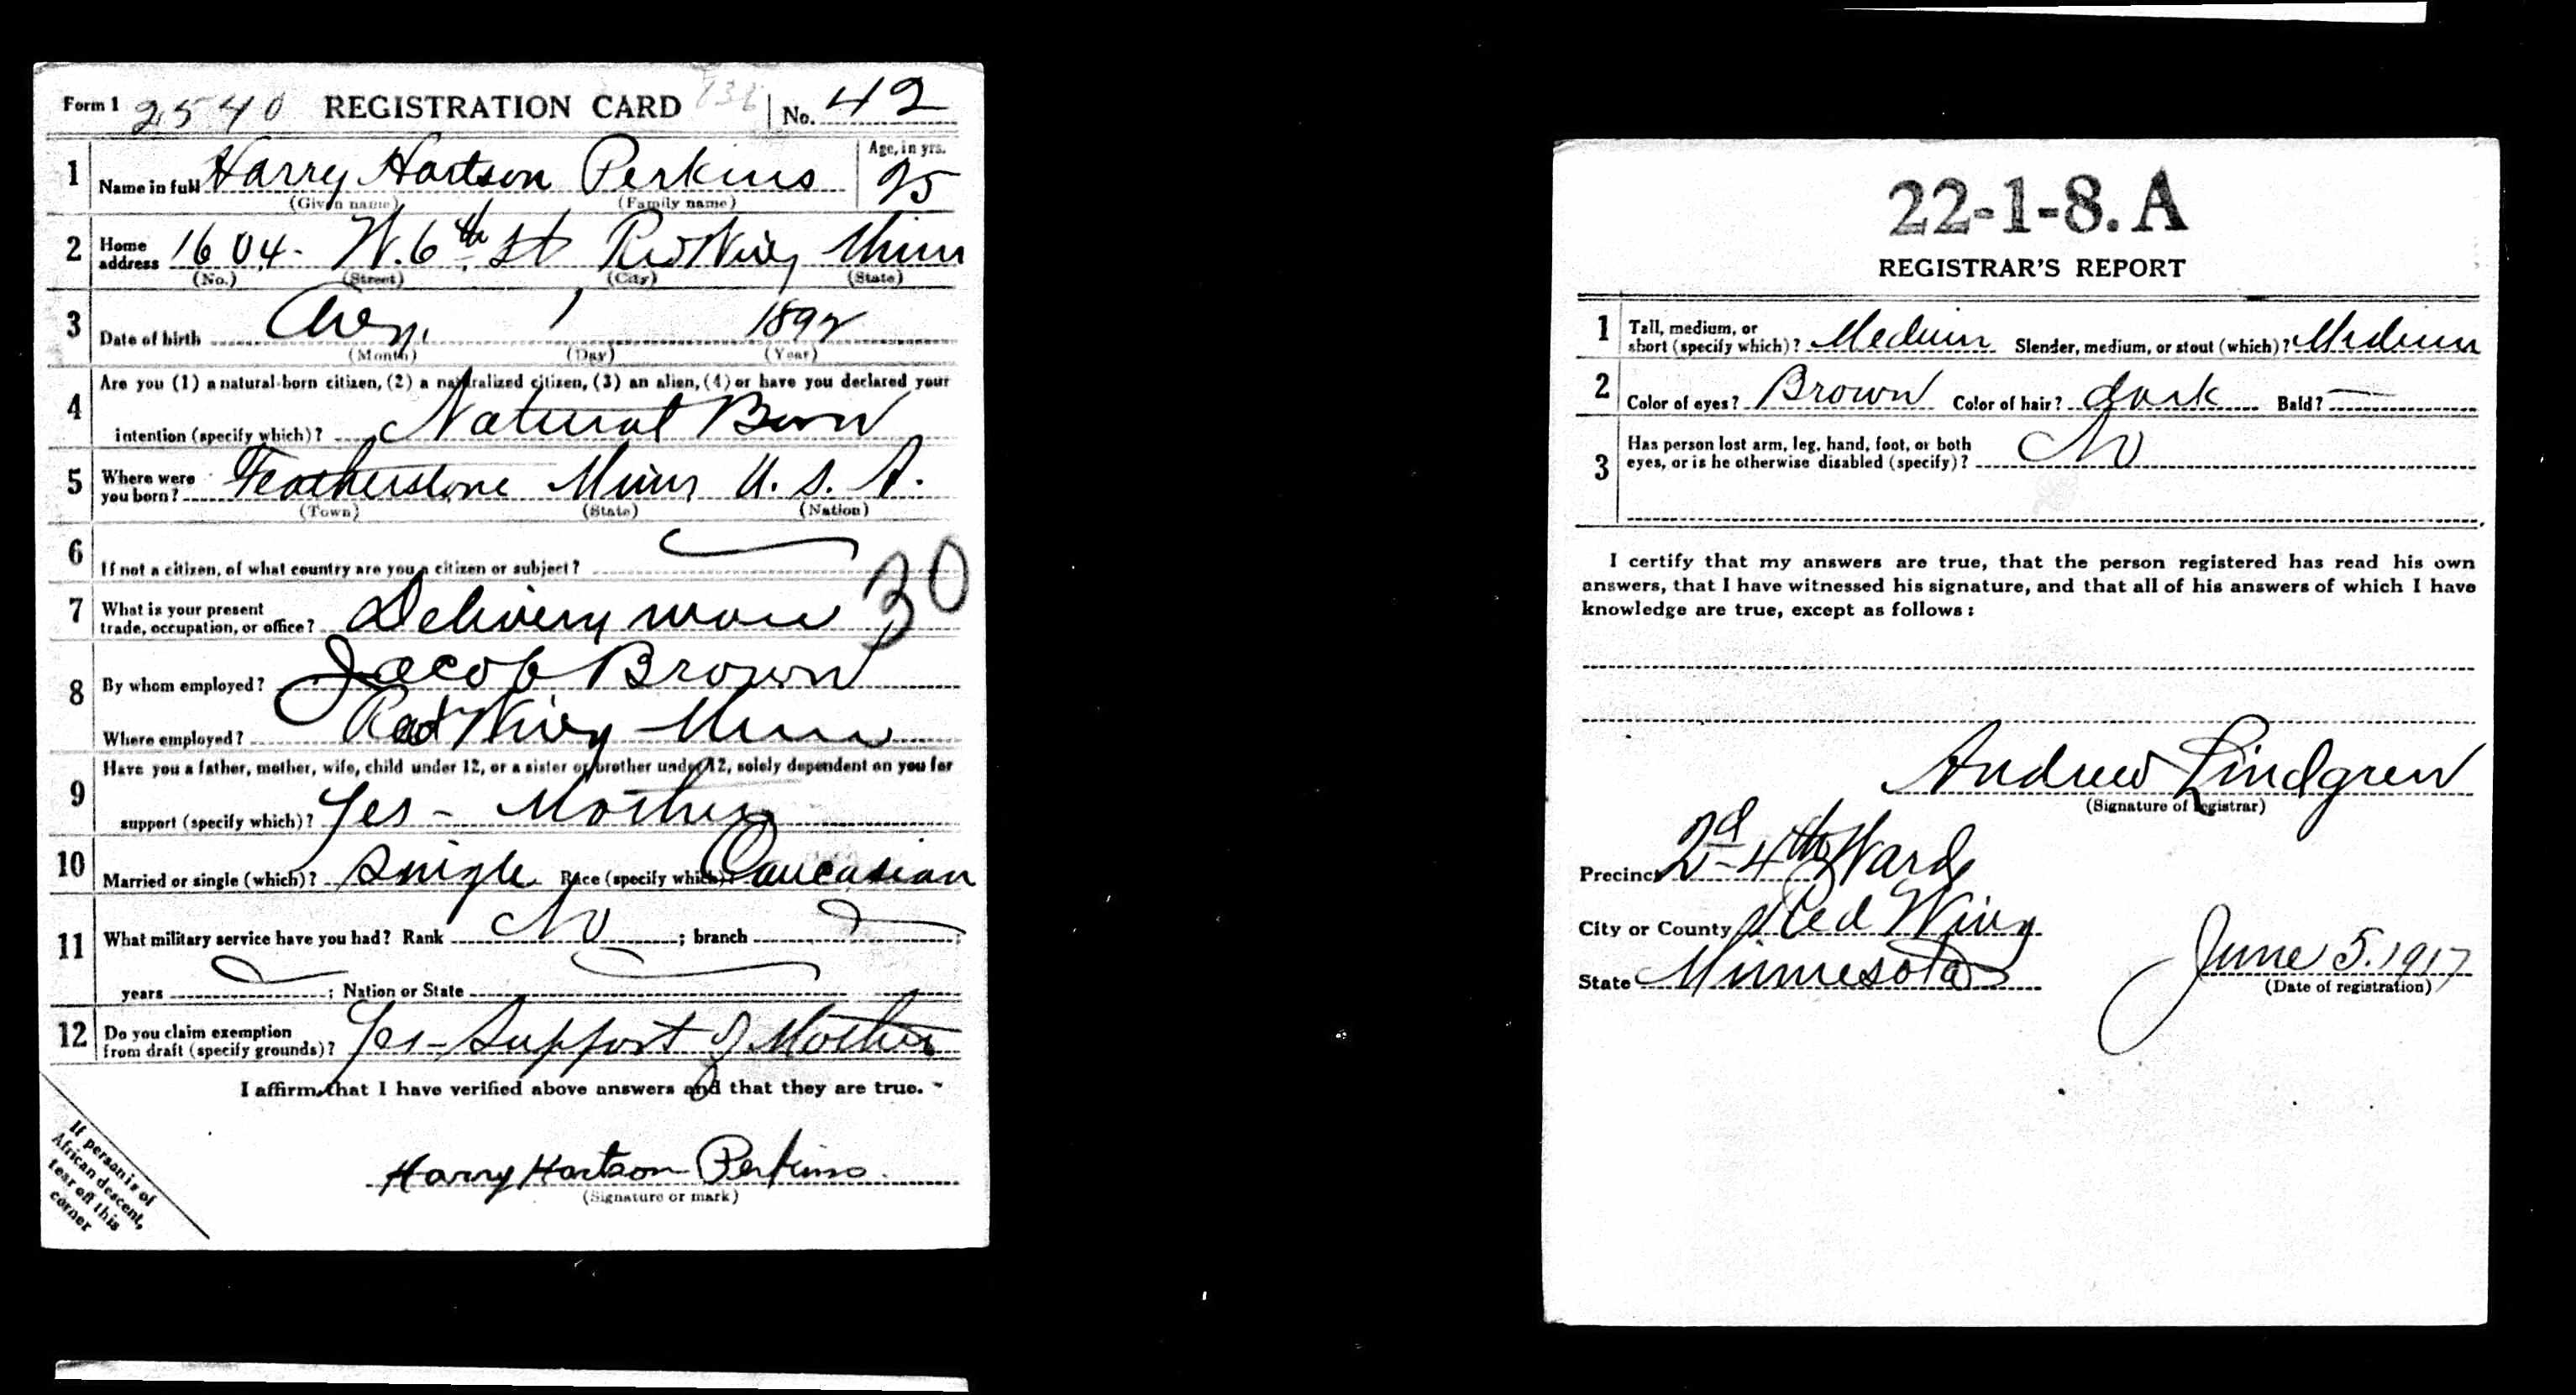 Form 1 2540 REGISTRATION CARD No. 42
1 Name in full Harry Hartson Perkins Age, in yrs. 25
(Given name) (Family name)
2 Home address 1604 - W. 6th St Red Wing Minn
(No.) (Street) (City) (State)
3 Date of birth Aug. 1 1892
(Month) (Day) (Year)
4 Are you (1) a natural-born citizen, (2) a naturalized citizen, (3) an alien, (4) or have you declared your
intention (specify which)? Natural Born
5 Where were you born? Featherstone Minn U. S. A.
(Town) (State) (Nation)
6 If not a citizen, of what country are you a citizen or subject?
30
7 What is your present trade, occupation, or office? Delivery man
8 By whom employed? Jacob Brown
Where employed? Red Wing Minn
9 Have you a father, mother, wife, child under 12, or a sister or brother under 12, solely dependent on you for
support (specify which)? Yes - Mother
10 Married or single (which)? Single Race (specify which)? Caucasian
11 What military service have you had? Rank No ; branch ;
years ; Nation or State
12 Do you claim exemption from draft (specify grounds)? Yes - Support of Mother
I affirm that I have verified above answers and that they are true.
Harry Hartson Perkins
(Signature or mark)
If person is of
African descent,
tear off this
corner
22-1-8. A
REGISTRAR'S REPORT
1 Tall, medium, or short (specify which)? Medium Slender, medium, or stout (which)? Medium
2 Color of eyes? Brown Color of hair? dark Bald? —
3 Has person lost arm, leg, hand, foot, or both
eyes, or is he otherwise disabled (specify)? No
I certify that my answers are true, that the person registered has read his own
answers, that I have witnessed his signature, and that all of his answers of which I have
knowledge are true, except as follows:
Andrew Lindgren
(Signature of registrar)
Precinct 2d - 4th Ward
City or County Red Wing
State Minnesota
June 5. 1917
(Date of registration)